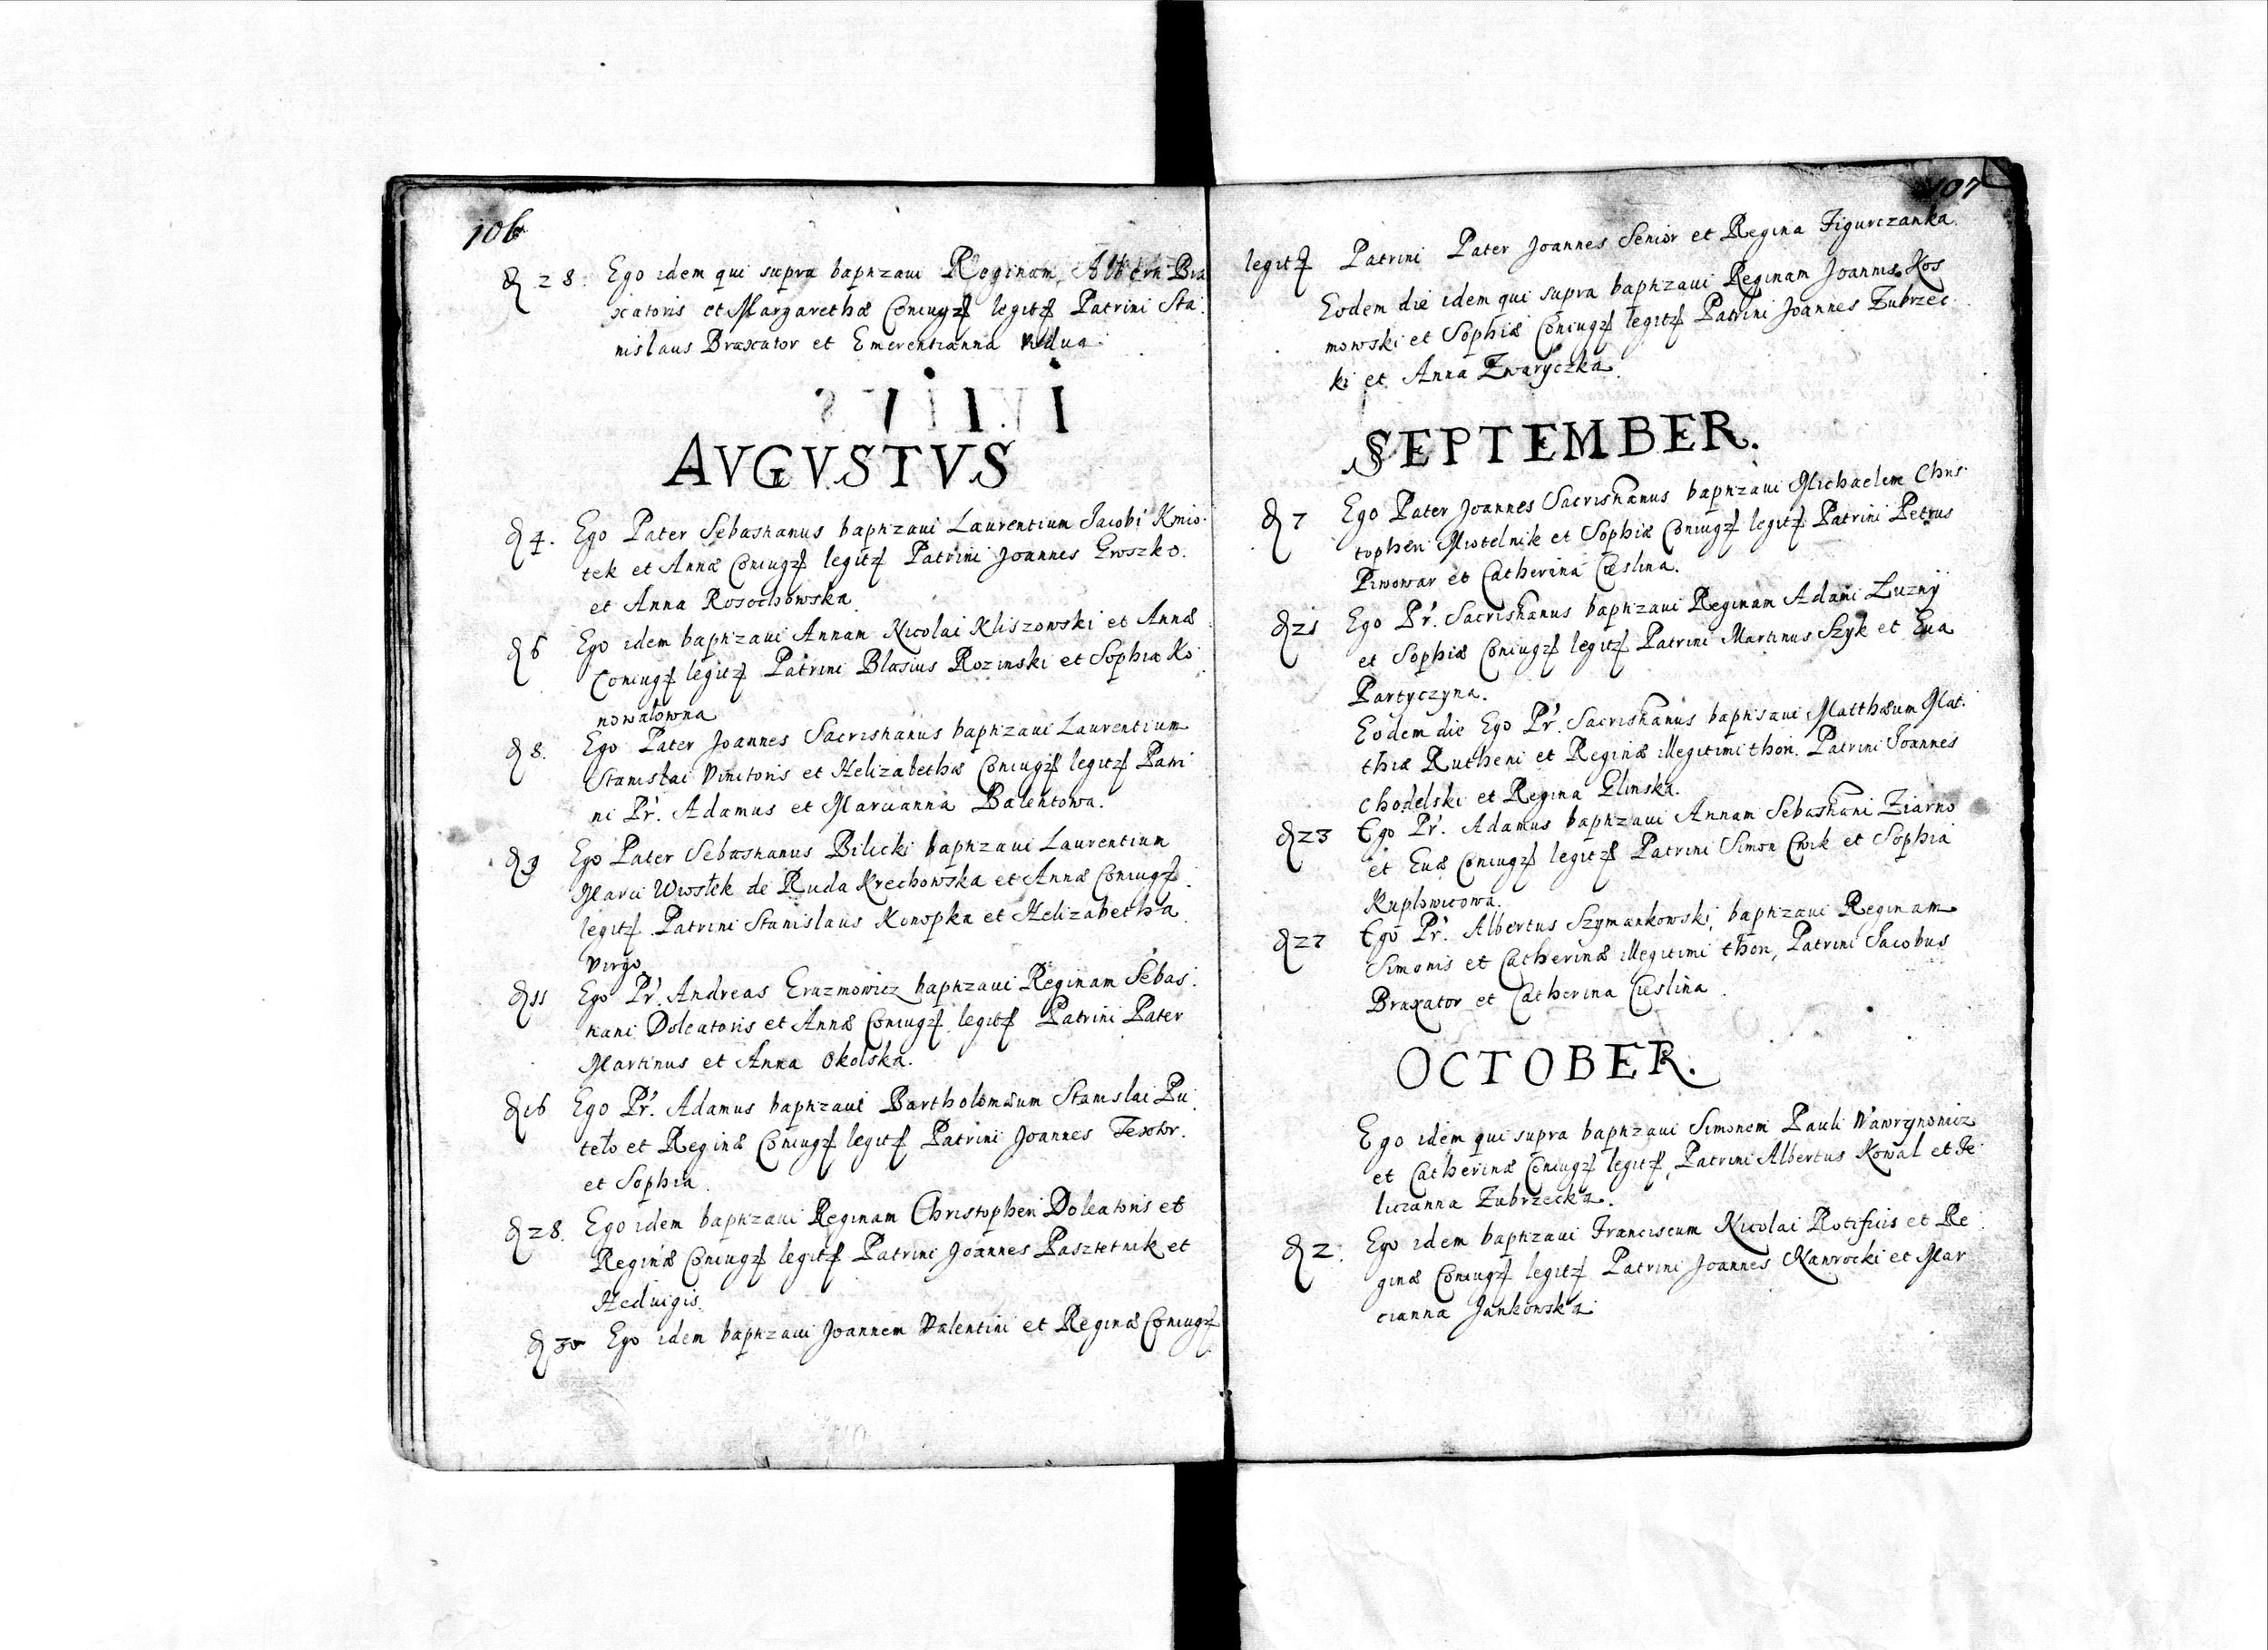 106
D 28. Ego idem qui supra baptizaui Reginam Alberti Bra
xatoris et Margarethæ Coniugū legitū Patrini Sta
nislaus Braxator et Emerentianna vidua.
AVGVSTVS
D 4. Ego Pater Sebastianus baptizaui Laurentium Jacobi Kmio
tek et Annæ Coniugū legitū Patrini Joannes Groszko.
et Anna Rosochowska
D 6 Ego idem baptizaui Annam Nicolai Kliszowski et Annæ
Coniugū legitū Patrini Blasius Rozinski et Sophia Ko
nowałowna
D 8. Ego Pater Joannes Sacristianus baptizaui Laurentium
Stanislai Vinitoris et Helizabethæ Coniugū legitū Patri
ni Pr. Adamus et Marcianna Balentowa.
D 9 Ego Pater Sebastianus Bilicki baptizaui Laurentium
Marci Wiosłek de Ruda Krechowska et Annæ Coniugū
legitū Patrini Stanislaus Konopka et Helizabetha
Virgo
D 11 Ego Pr. Andreas Erazmowicz baptizaui Reginam Sebas
tiani Doleatoris et Annæ Coniugū legitū Patrini Pater
Martinus et Anna Okolska.
D 16 Ego Pr. Adamus baptizaui Bartholomæum Stanislai Pu
teło et Reginæ Coniugū legitū Patrini Joannes Textor.
et Sophia.
D 28. Ego idem baptizaui Reginam Christopheri Doleatoris et
Reginæ Coniugū legitū Patrini Joannes Pasztetnik et
Heduigis
D 30 Ego idem baptizaui Joannem Valentini et Reginæ Coniugū
107
legitū Patrini Pater Joannes Senior et Regina Figurczanka
Eodem die idem qui supra baptizaui Reginam Joannis Kos
mowski et Sophiæ Coniugū legitū Patrini Joannes Zubrzec
ki et Anna Zwaryczka
SEPTEMBER.
D 7 Ego Pater Joannes Sacristianus baptizaui Michaelem Chris
topheri Miotelnik et Sophiæ Coniugū legitū Patrini Petrus
Piwowar et Catherina Cieslina.
D 21 Ego Pr. Sacristianus baptizaui Reginam Adami Luzny
et Sophiæ Coniugū legitū Patrini Martinus Szyk et Eua
Partyczyna.
Eodem die Ego Pr. Sacristianus baptisaui Matthæum Mat
thiæ Rutheni et Reginæ illegitimi thori. Patrini Joannes
Chodelski et Regina Glinska.
D 23 Ego Pr. Adamus baptizaui Annam Sebastiani Ziarno
et Euæ Coniugū legitū Patrini Simon Cwik et Sophia
Kuplowicowa.
D 27 Ego Pr. Albertus Szymankowski, baptizaui Reginam
Simonis et Catherinæ illegitimi thori, Patrini Jacobus
Braxator et Catherina Cieslina.
OCTOBER.
Ego idem qui supra baptizaui Simonem Pauli Wawrynowicz
et Catherinæ Coniugū legitū, Patrini Albertus Kowal et Fe
licianna Zubrzecka.
D 2. Ego idem baptizaui Franciscum Nicolai Rotificis et Re
ginæ Coniugū legitū Patrini Joannes Nawrocki et Mar
cianna Jankowska